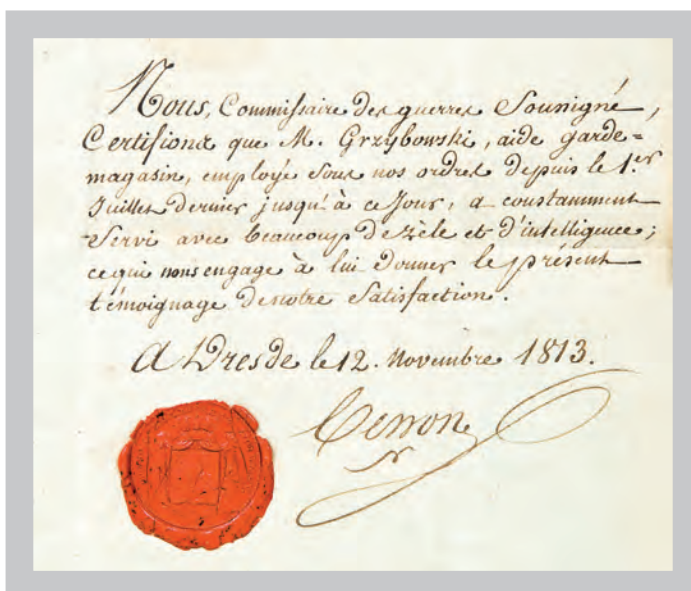 Nous, Commissaire des guerres Soussigné,
Certifions que M. Grzybowski, aide garde=
magasin, employé sous nos ordres depuis le 1.er
Juillet dernier jusqu'à ce Jour, a constamment
Servi avec beaucoup de zèle et d'intelligence;
ce qui nous engage à lui donner le présent
témoignage de notre Satisfaction.
A Dresde le 12. Novembre 1813.